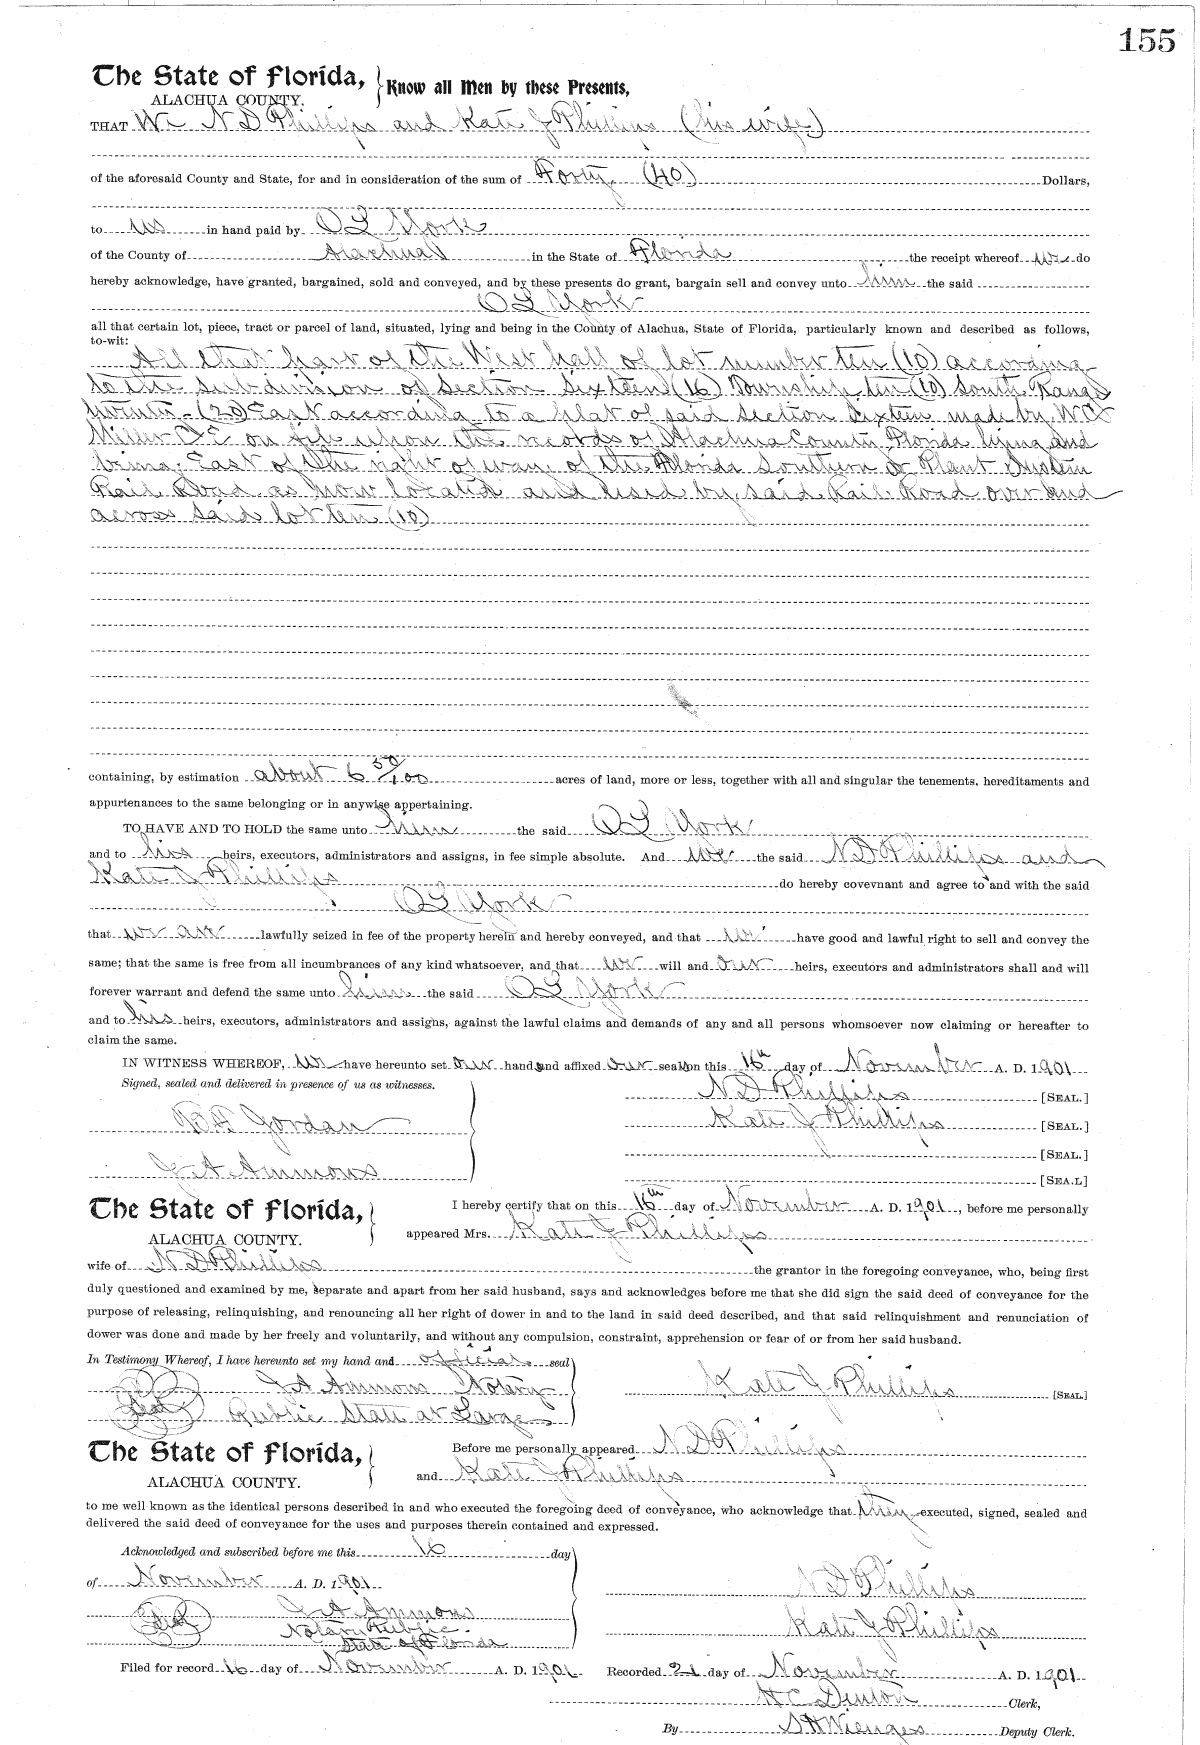 155
The State of Florida, } Know all Men by these Presents,
ALACHUA COUNTY.
THAT We N D Phillips and Kate J Phillips (his wife)
of the aforesaid County and State, for and in consideration of the sum of Forty (40) Dollars,
to us in hand paid by O L York
of the County of Alachua in the State of Florida the receipt whereof we do
hereby acknowledge, have granted, bargained, sold and conveyed, and by these presents do grant, bargain sell and convey unto him the said
O L York
all that certain lot, piece, tract or parcel of land, situated, lying and being in the County of Alachua, State of Florida, particularly known and described as follows,
to-wit:
All that part of the West half of lot number ten (10) according
to the subdivision of Section Sixteen (16) Township ten (10) South Range
twenty (20) East according to a plat of said Section Sixteen made by
Miller C E on file upon the records of Alachua County Florida lying and
being East of the right of way of the Florida Southern or Plant System
Rail Road as now located and used by said Rail Road over and
across said lot ten (10)
containing, by estimation about 6 50/100 acres of land, more or less, together with all and singular the tenements, hereditaments and
appurtenances to the same belonging or in anywise appertaining.
TO HAVE AND TO HOLD the same unto him the said O L York
and to his heirs, executors, administrators and assigns, in fee simple absolute. And we the said N D Phillips and
Kate J Phillips do hereby covevnant and agree to and with the said
O L York
that we are lawfully seized in fee of the property herein and hereby conveyed, and that we have good and lawful right to sell and convey the
same; that the same is free from all incumbrances of any kind whatsoever, and that we will and our heirs, executors and administrators shall and will
forever warrant and defend the same unto him the said O L York
and to his heirs, executors, administrators and assigns, against the lawful claims and demands of any and all persons whomsoever now claiming or hereafter to
claim the same.
IN WITNESS WHEREOF, we have hereunto set our hands and affixed our seals on this 16th day of November A. D. 1901
Signed, sealed and delivered in presence of us as witnesses.
N D Phillips [SEAL.]
B F Jordan Kate J Phillips [SEAL.]
[SEAL.]
J A Ammons [SEA.L]
The State of Florida, } I hereby certify that on this 16th day of November A. D. 1901, before me personally
ALACHUA COUNTY. appeared Mrs. Kate J Phillips
wife of N D Phillips the grantor in the foregoing conveyance, who, being first
duly questioned and examined by me, separate and apart from her said husband, says and acknowledges before me that she did sign the said deed of conveyance for the
purpose of releasing, relinquishing, and renouncing all her right of dower in and to the land in said deed described, and that said relinquishment and renunciation of
dower was done and made by her freely and voluntarily, and without any compulsion, constraint, apprehension or fear of or from her said husband.
In Testimony Whereof, I have hereunto set my hand and official seal
J A Ammons Notary Kate J Phillips [SEAL.]
Seal Public State at Large
The State of Florida, } Before me personally appeared N D Phillips
ALACHUA COUNTY. and Kate J Phillips
to me well known as the identical persons described in and who executed the foregoing deed of conveyance, who acknowledge that they executed, signed, sealed and
delivered the said deed of conveyance for the uses and purposes therein contained and expressed.
Acknowledged and subscribed before me this 16 day
of November A. D. 1901 N D Phillips
Seal J A Ammons Kate J Phillips
Notary Public
State of Florida
Filed for record 16 day of November A. D. 1901 Recorded 21 day of November A. D. 1901
H C Denton Clerk,
By S H Wienges Deputy Clerk.